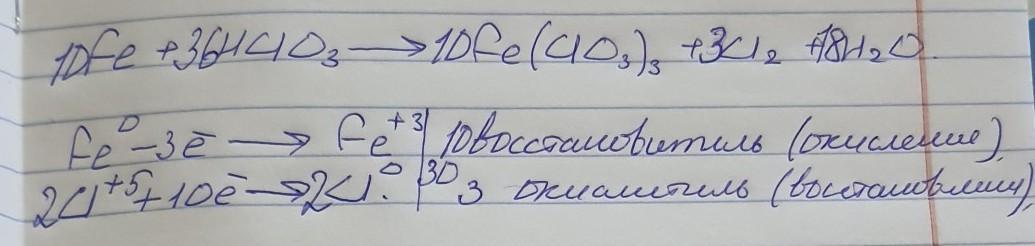 10Fe + 36HClO₃ → 10Fe(ClO₃)₃ + 3Cl₂ + 18H₂O.
Fe⁰ - 3ē → Fe⁺³ | 10 восстановитель (окисление),
2Cl⁺⁵ + 10ē → 2Cl⁰. | 30 3 окислитель (восстановлени),